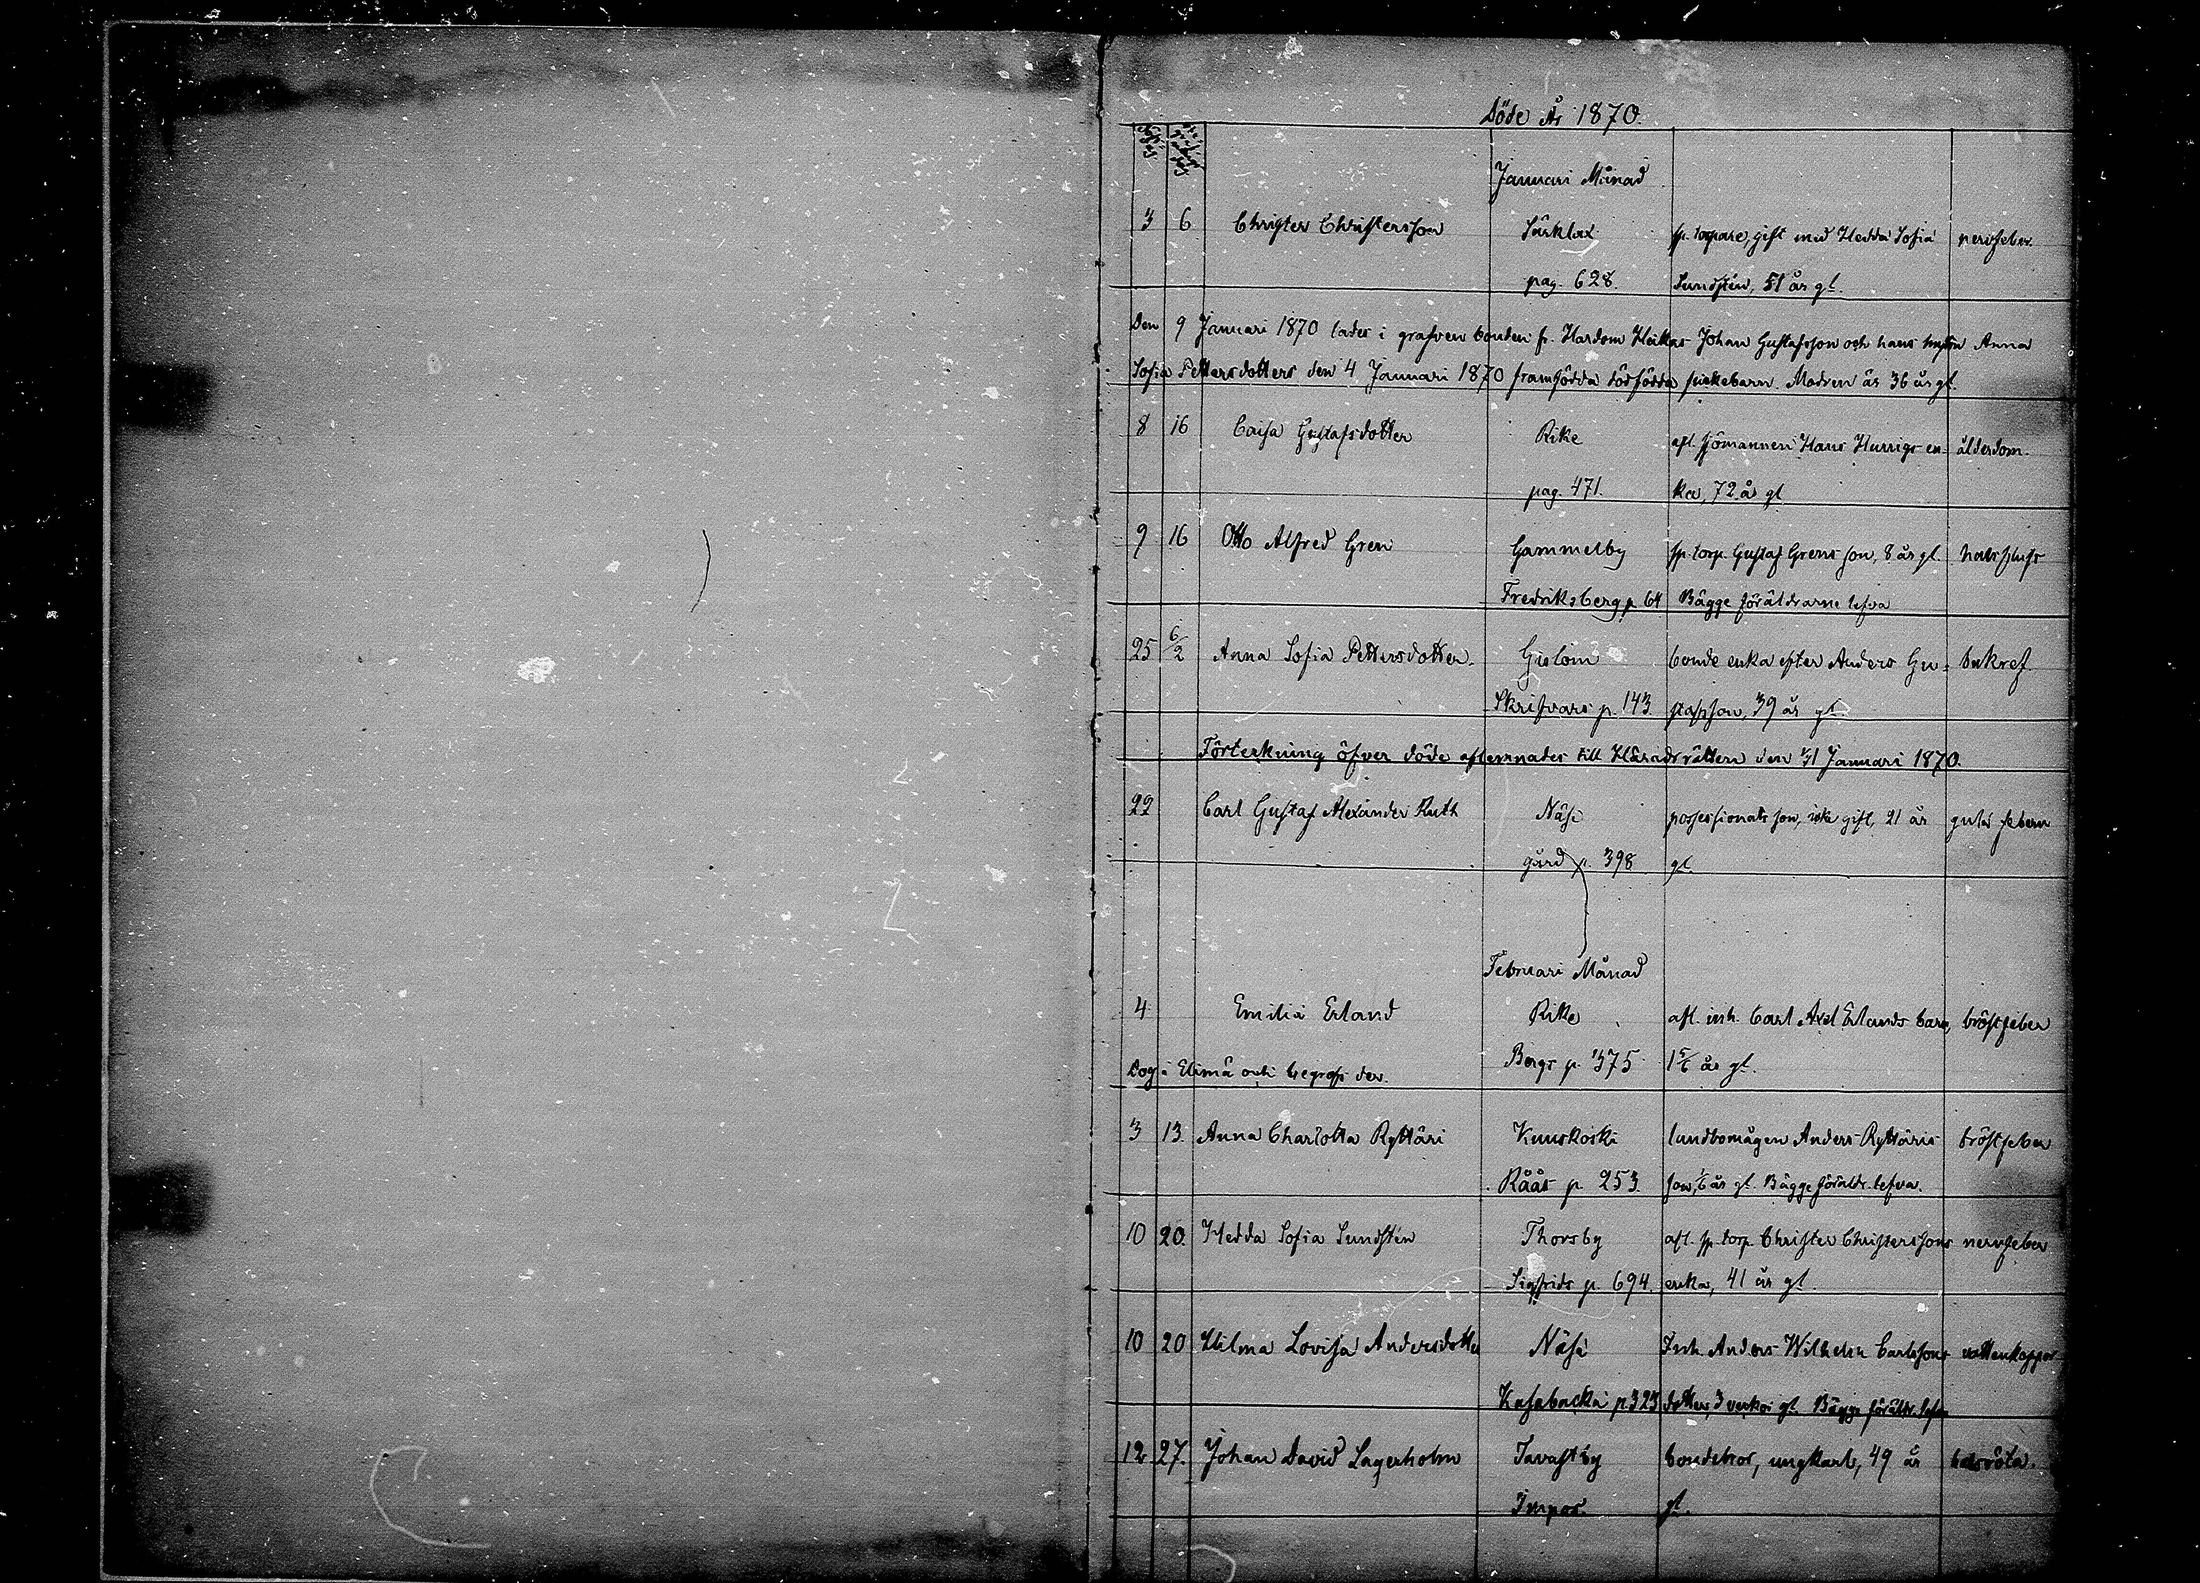 Döde År 1870.
Januari Månad
3 6 Christer Christersson Särklax sp. torpare, gift med Hedda Sofia nervfeber
pag. 628. Sundstén, 51 år gl.
Den 9 Januari 1870 lades i grafven bonden fr. Hardom Heikas Johan Gustafsson och hans hustru Anna
Sofia Pettersdotters den 4 Januari 1870 framfödda dödfödda flickebarn. Modren är 36 år gl.
8 16 Caisa Gustafsdotter Rike afl. sjömannen Hans Hurrigs en- ålderdom.
pag. 471. ka, 72 år gl
9 16 Otto Alfred Gren Gammelby sp. torp. Gustaf Grens son, 8 år gl.
Fredriksberg p. 64 Bägge föräldrarne lefva
25 6/2 Anna Sofia Pettersdotter. Gislom bonde enka efter Anders Gu-
Skrifvars p. 143. stafsson, 39 år gl.
Förteckning öfver döde aflemnades till Häradsrätten den Januari 1870.
22 Carl Gustaf Alexander Ruth Näse possessionats son, icke gift, 21 år gula febern
gård p. 398 gl.
Februari Månad
4 Emilia Erland Rike afl. inh. Carl Axel Erlands barn, bröstfeber
Dog i Elimä och begrofs der. Borgs p. 375 1 5/6 år gl.
3 13. Anna Charlotta Ryttäri Kuuskoski landbomågen Anders Ryttäris bröstfeber
Råås p. 253. son, 1/6 år gl. Bägge föräldr. lefva.
10 20. Hedda Sofia Sundstén Thorsby afl. sp. torp. Christer Christerssons nervfeber
Sigfrids p. 694. enka, 41 år gl.
10 20 Hilma Lovisa Andersdotter Näse Inh. Anders Wilhelm Carlssons vattenkoppor
Kasabacka p. 323 dotter, 3 veckor gl. Bägge föräldr. lefva
12 27. Johan David Lagerholm Tavastby bondebror, ungkarl, 49 år
Impos. gl.